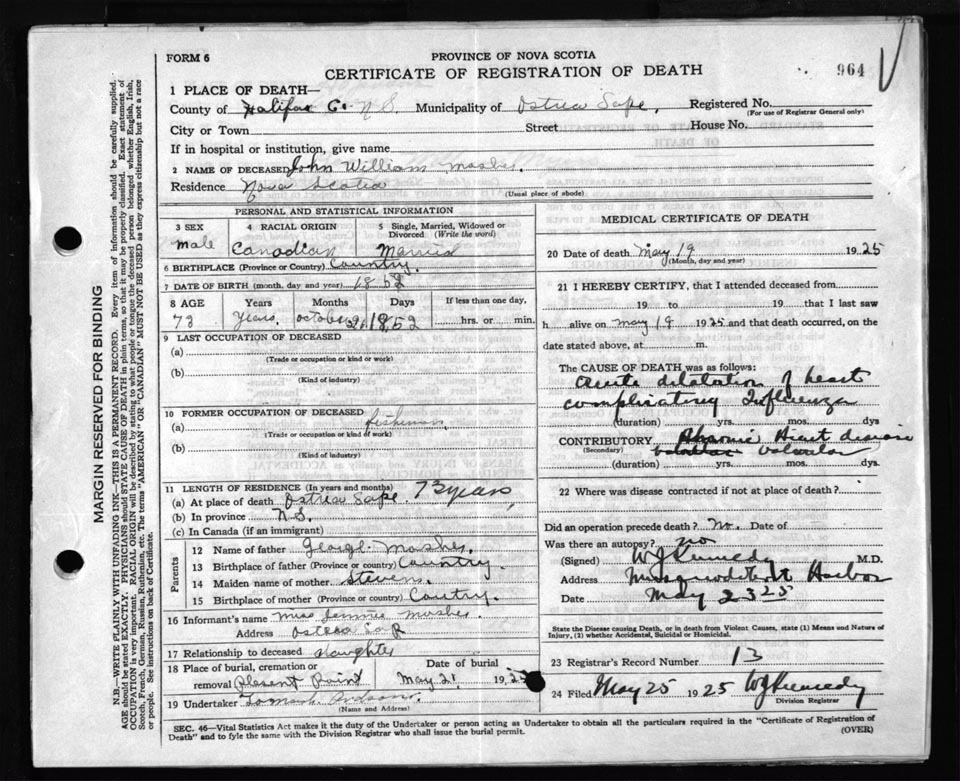 FORM 6
PROVINCE OF NOVA SCOTIA
CERTIFICATE OF REGISTRATION OF DEATH
964
1 PLACE OF DEATH—
County of Halifax Co. N.S. Municipality of Ostrea Registered No.
(For use of Registrar General only)
City or Town Street House No.
If in hospital or institution, give name
2 NAME OF DECEASED John William Mosher
Residence Nova Scotia
(Usual place of abode)
PERSONAL AND STATISTICAL INFORMATION
3 SEX 4 RACIAL ORIGIN 5 Single, Married, Widowed or Divorced (Write the word)
male Canadian Married
6 BIRTHPLACE (Province or Country) Country.
7 DATE OF BIRTH (month, day and year) 1852
8 AGE Years Months Days If less than one day,
Years. October 1852 hrs. or min.
9 LAST OCCUPATION OF DECEASED
(a)
(Trade or occupation or kind or work)
(b)
(Kind of industry)
10 FORMER OCCUPATION OF DECEASED
(a) fisherman
(Trade or occupation or kind of work)
(b)
(Kind of industry)
11 LENGTH OF RESIDENCE (In years and months)
(a) At place of death Ostrea 73 years
(b) In province N.S.
(c) In Canada (if an immigrant)
Parents
12 Name of father George Mosher.
13 Birthplace of father (Province or country) Country.
14 Maiden name of mother Stevens.
15 Birthplace of mother (Province or country) Country.
16 Informant's name Jennie Mosher
Address Ostrea
17 Relationship to deceased daughter
18 Place of burial, cremation or removal Plesent Point Date of burial May 21 1925
19 Undertaker
(Name and Address)
MEDICAL CERTIFICATE OF DEATH
20 Date of death May 19 1925
(Month, day and year)
21 I HEREBY CERTIFY, that I attended deceased from
19 to 19 that I last saw
h alive on May 19 1925 and that death occurred, on
date stated above, at m.
The CAUSE OF DEATH was as follows:
Acute dilatation of heart
complicating Influenza
(duration) yrs. mos. dys.
CONTRIBUTORY Chronic Heart disease
(Secondary) valvular
(duration) yrs. mos. dys.
22 Where was disease contracted if not at place of death?
Did an operation precede death? No. Date of
Was there an autopsy? no
(Signed) W J Kennedy M.D.
Address Musquodoboit Harbor
Date May 23 25
State the Disease causing Death, or in death from Violent Causes, state (1) Means and Nature of
Injury, (2) whether Accidental, Suicidal or Homicidal.
23 Registrar's Record Number 13
24 Filed May 25 1925 W J Kennedy
Division Registrar
SEC. 46—Vital Statistics Act makes it the duty of the Undertaker or person acting as Undertaker to obtain all the particulars required in the "Certificate of Registration of
Death" and to fyle the same with the Division Registrar who shall issue the burial permit.
(OVER)
MARGIN RESERVED FOR BINDING
N.B.—WRITE PLAINLY WITH UNFADING INK—THIS IS A PERMANENT RECORD. Every item of information should be carefully supplied.
AGE should be stated EXACTLY. PHYSICIANS should STATE CAUSE OF DEATH in plain terms, so that it may be properly classified. Exact statement of
OCCUPATION is very important. RACIAL ORIGIN will be described by stating to what people or tongue the deceased person belonged whether English, Irish,
Scotch, French, German, Russian, Ruthenian, etc. The terms "AMERICAN" or "CANADIAN" MUST NOT BE USED as they express citizenship but not a race
or people. See instructions on back of Certificate.